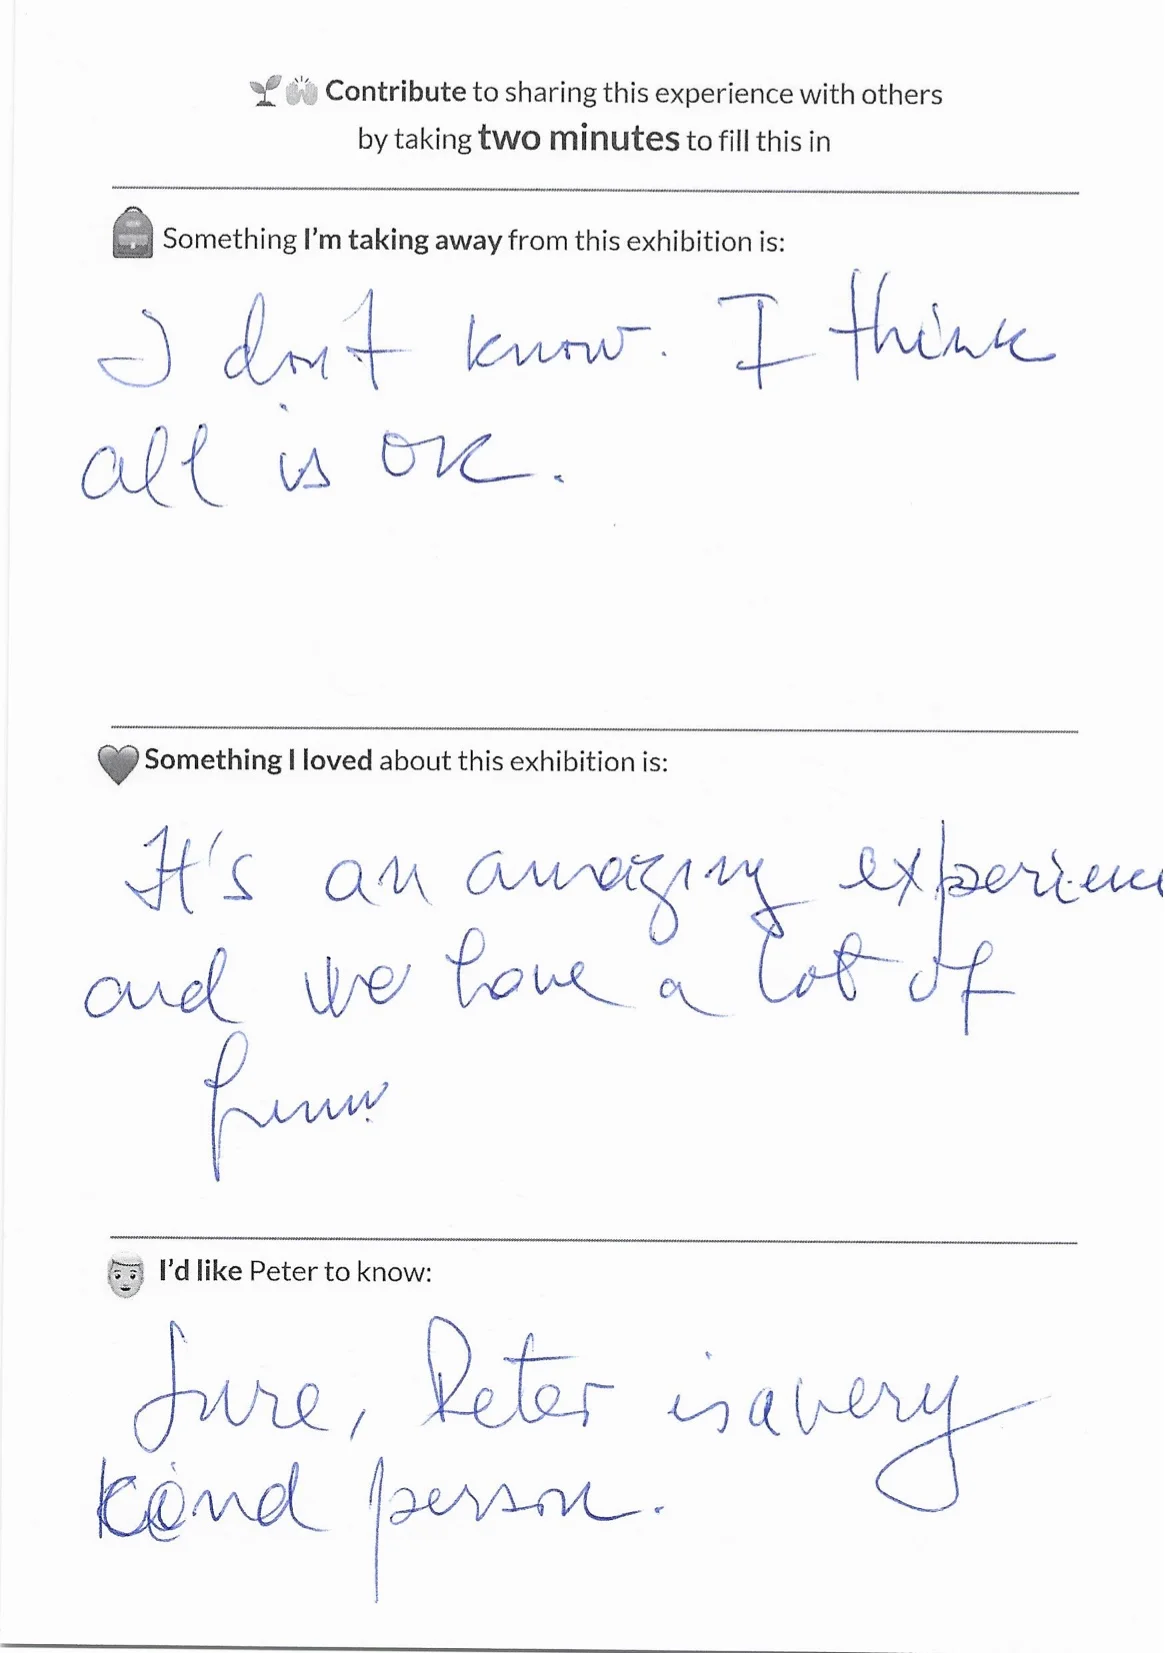 Contribute to sharing this experience with others
by taking two minutes to fill this in
Something I'm taking away from this exhibition is:
I don't know. I think
all is OK.
Something I loved about this exhibition is:
It's an amazing experienc
and we have a lot of
funn
I'd like Peter to know:
Sure, Peter is a very
kind person.